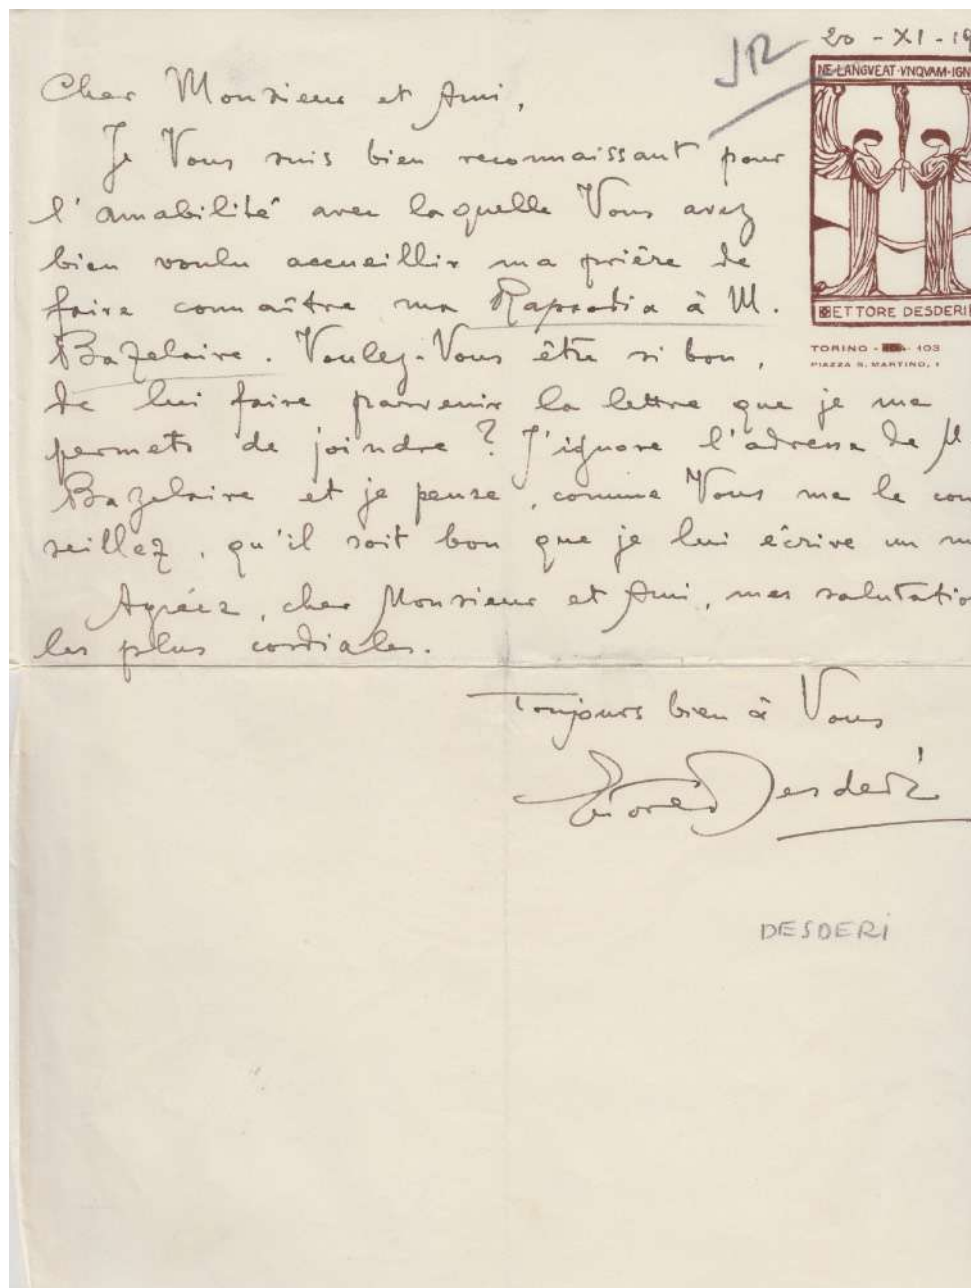 20 - XI - 19
JR
NE·LANGVEAT·VNQVAM·IGN
ETTORE DESDERI
TORINO - 103
PIAZZA S. MARTINO, 1
Cher Monsieur et Ami,
Je Vous suis bien reconnaissant pour
l'amabilité avec laquelle Vous avez
bien voulu accueillir ma prière de
faire connaître ma Rapsodia à M.
Bazelaire. Voulez-Vous être si bon,
de lui faire parvenir la lettre que je me
permets de joindre? J'ignore l'adresse de M
Bazelaire et je pense, comme Vous me le con
seillez, qu'il soit bon que je lui écrive un m
Agréez, cher Monsieur et Ami, mes salutatio
les plus cordiales.
Toujours bien à Vous
Ettore Desderi
DESDERI